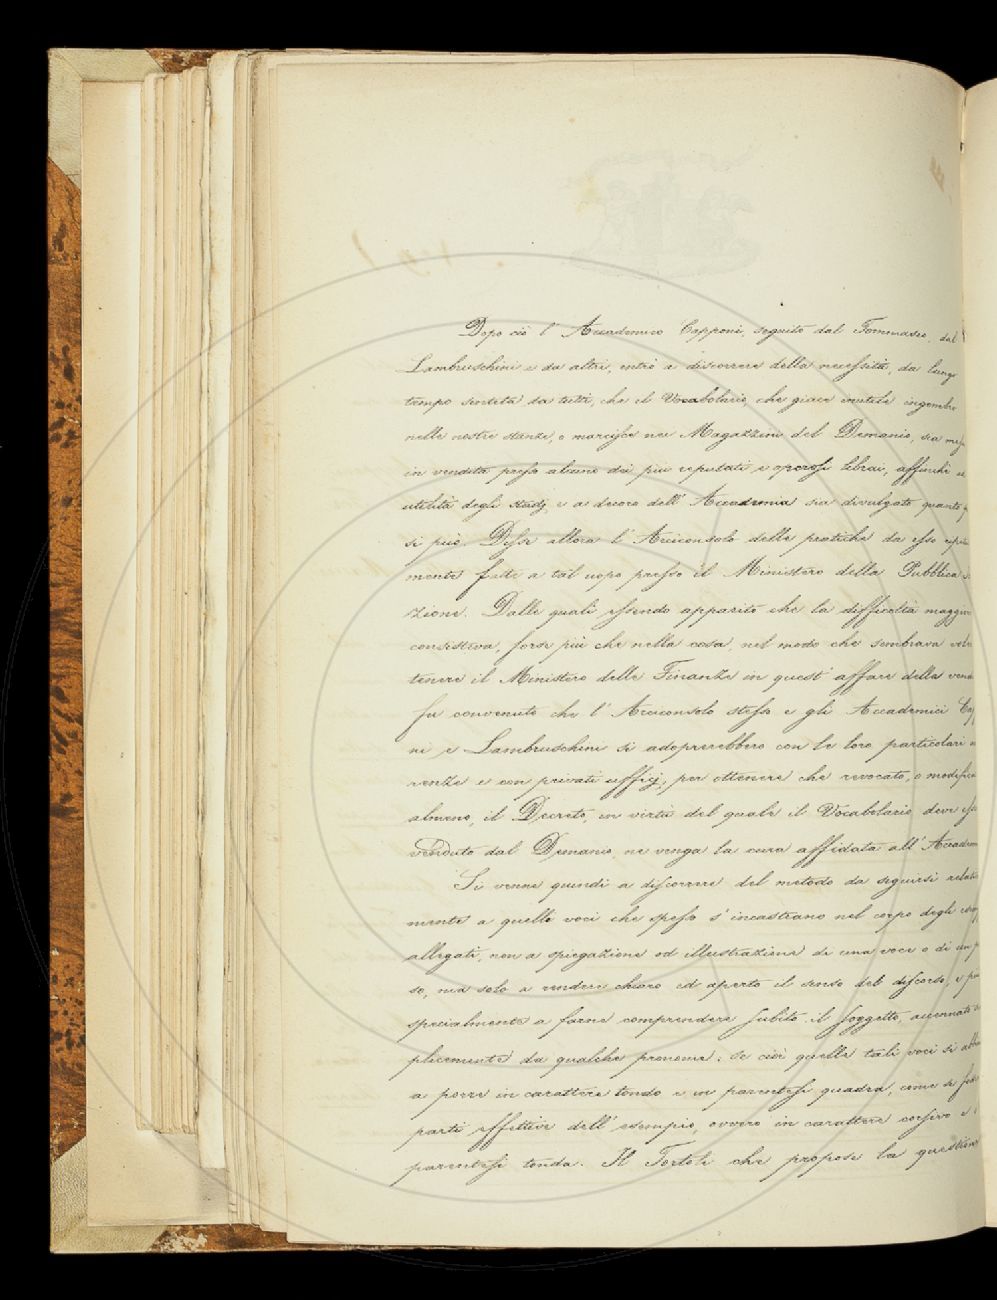 Dopo ciò l'Accademico Capponi, seguito dal Tommaseo, dal
Lambruschini e da altri, entrò a discorrere della necessità, da lungo
tempo sentita da tutti, che il Vocabolario, che giace inutile ingombro
nelle nostre stanze, o marcisce nei Magazzini del Demanio, sia messo
in vendita presso alcuno dei più reputati e operosi librai, affinchè ad
utilità degli studj e a decoro dell'Accademia sia divulgato quanto
si può. Disse allora l'Arciconsolo delle pratiche da esso
mente fatte a tal uopo presso il Ministero della Pubblica
zione. Dalle quali essendo apparito che la difficoltà maggiore
consisteva, forse più che nella cosa, nel modo che sembrava
tenere il Ministero delle Finanze in quest'affare della vendita
fu convenuto che l'Arciconsolo stesso e gli Accademici Cap
ni e Lambruschini si adoprerebbero con le loro particolari
renze e con privati uffizj, per ottenere che revocato, o modificato
almeno, il Decreto, in virtù del quale il Vocabolario deve
venduto dal Demanio, ne venga la cura affidata all'Accademia
Si venne quindi a discorrere del metodo da seguirsi
mente a quelle voci che spesso s'incastrano nel corpo degli
allegati, non a spiegazione od illustrazione di una voce o di un
so, ma solo a rendere chiaro ed aperto il senso del discorso, e
specialmente a farne comprendere subito il soggetto, accennato
plicemente da qualche pronome: se cioè quelle tali voci si
a porre in carattere tondo e in parentesi quadra, come se
parti effettive dell'esempio, ovvero in carattere corsivo e
parentesi tonda. Il Tortoli che propose la questione